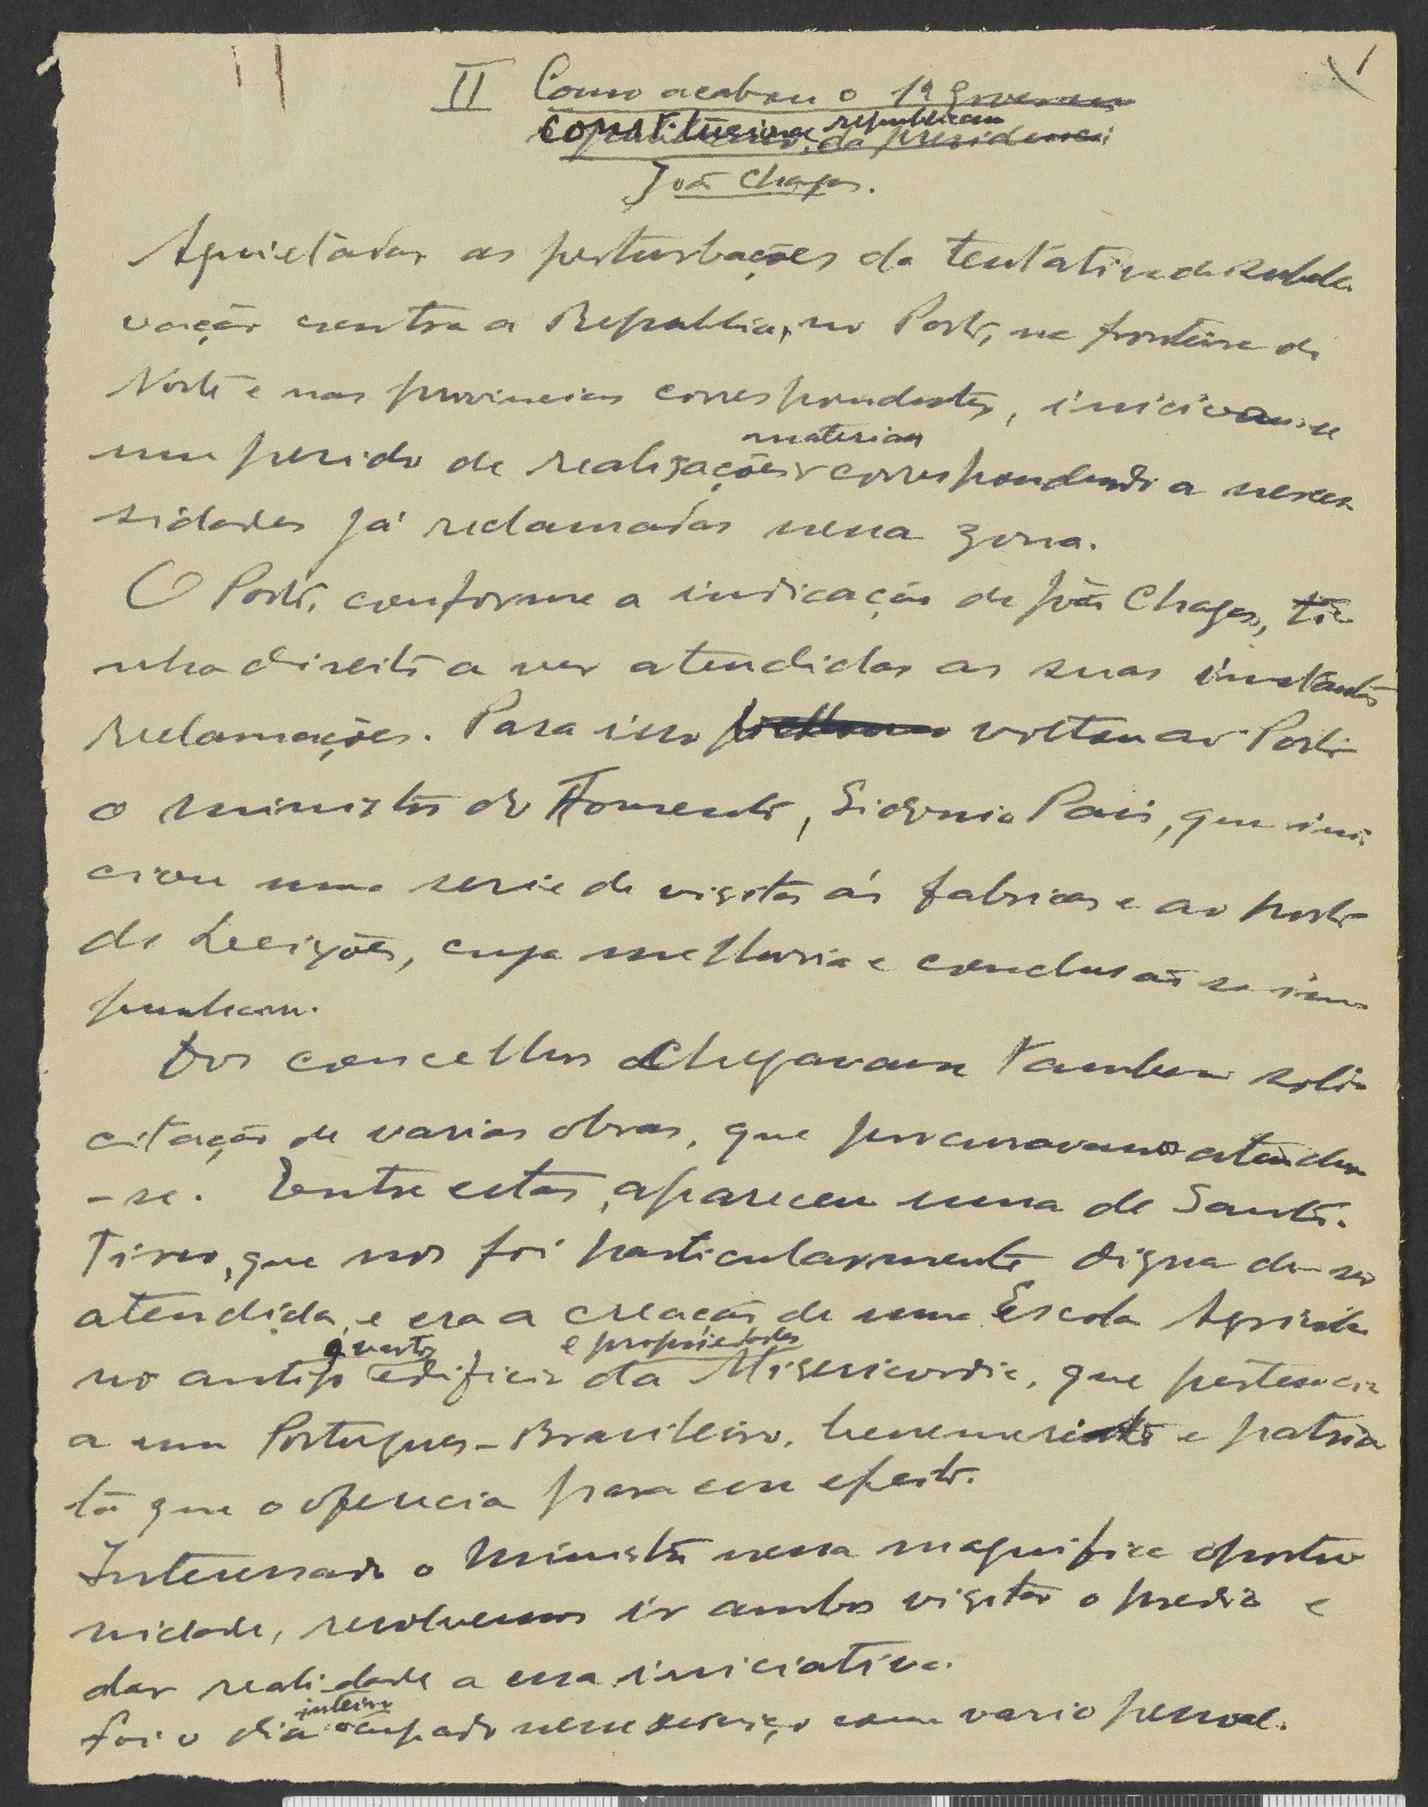 1
II Como acabou o 1º Governo
constitucional republicano da presidencia
João Chagas.
Aquietadas as perturbações da tentativa de suble-
vação contra a Republica, no Porto, na fronteira do
Norte e nas provincias correspondentes, iniciou-se
um perido de realizações materiais correspondendo a neces-
sidades já reclamadas nessa zona.
O Porto, conforme a indicação de João Chagas, ti-
nha direito a ver atendidas as suas instantes
reclamações. Para isso voltou ao Porto
o ministro do Fomento, Sidonio Pais, que ini-
ciou uma serie de visitas ás fabricas e ao porto
de Leixões, cuja melhoria e conclusão se im-
punham.
Dos concelhos chegavam tambem soli-
citação de varias obras, que procuravamos atender
-se. Entre estas, apareceu uma de Santo
Tirso, que nos foi particularmente digna de ser
atendida, e era a creação de uma Escola Agricola
no antigo e vasto edificio e propriedades da Misericordia, que pertencia
a um Portugues-Brasileiro, benemerito e patrio-
ta que o oferecia para esse efeito.
Interessado o Ministro nessa magnifica oportu-
nidade, resolvemos ir ambos visitar o predio e
dar realidade a essa iniciativa.
Foi o dia inteiro ocupado nesse serviço com vario pessoal.